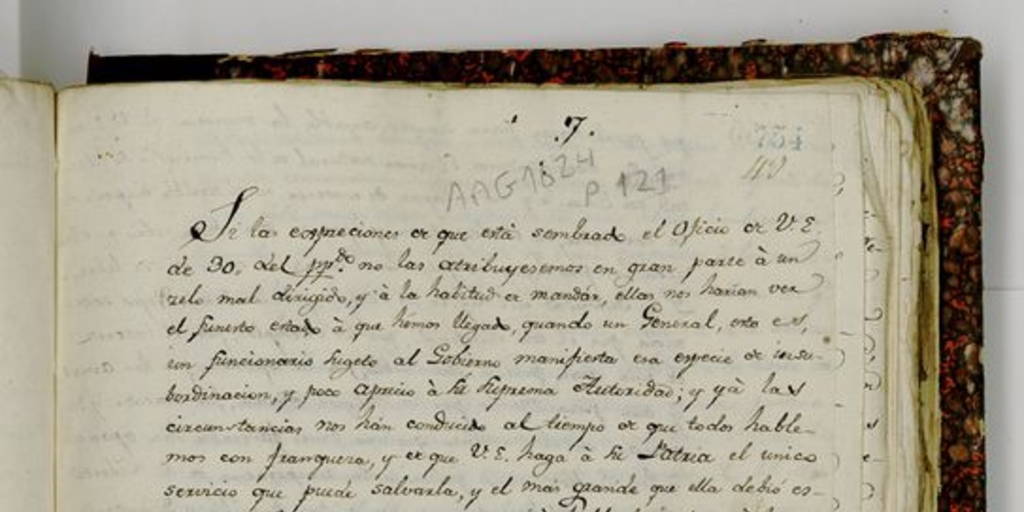 .7.
734
42
AAG 1824
P. 121
Si las expreciones de que està sembrado el Oficio de V. E.
de 30. del pp.do no las atribuyesemos en gran parte à un
zelo mal dirigido, y à la habitud de mandár, ellas nos harian ver
el funesto estado à que hémos llegado, quando un General, esto es,
un funcionario sugeto al Gobierno manifiesta esa especie de insu-
bordinacion, y poco aprecio à su suprema Autoridad; y yà las
circunstancias nos hán conducido al tiempo de que todos hable-
mos con franqueza, y de que V. E. haga à su Patria el unico
servicio que puede salvarla, y el mas grande que ella debió es-